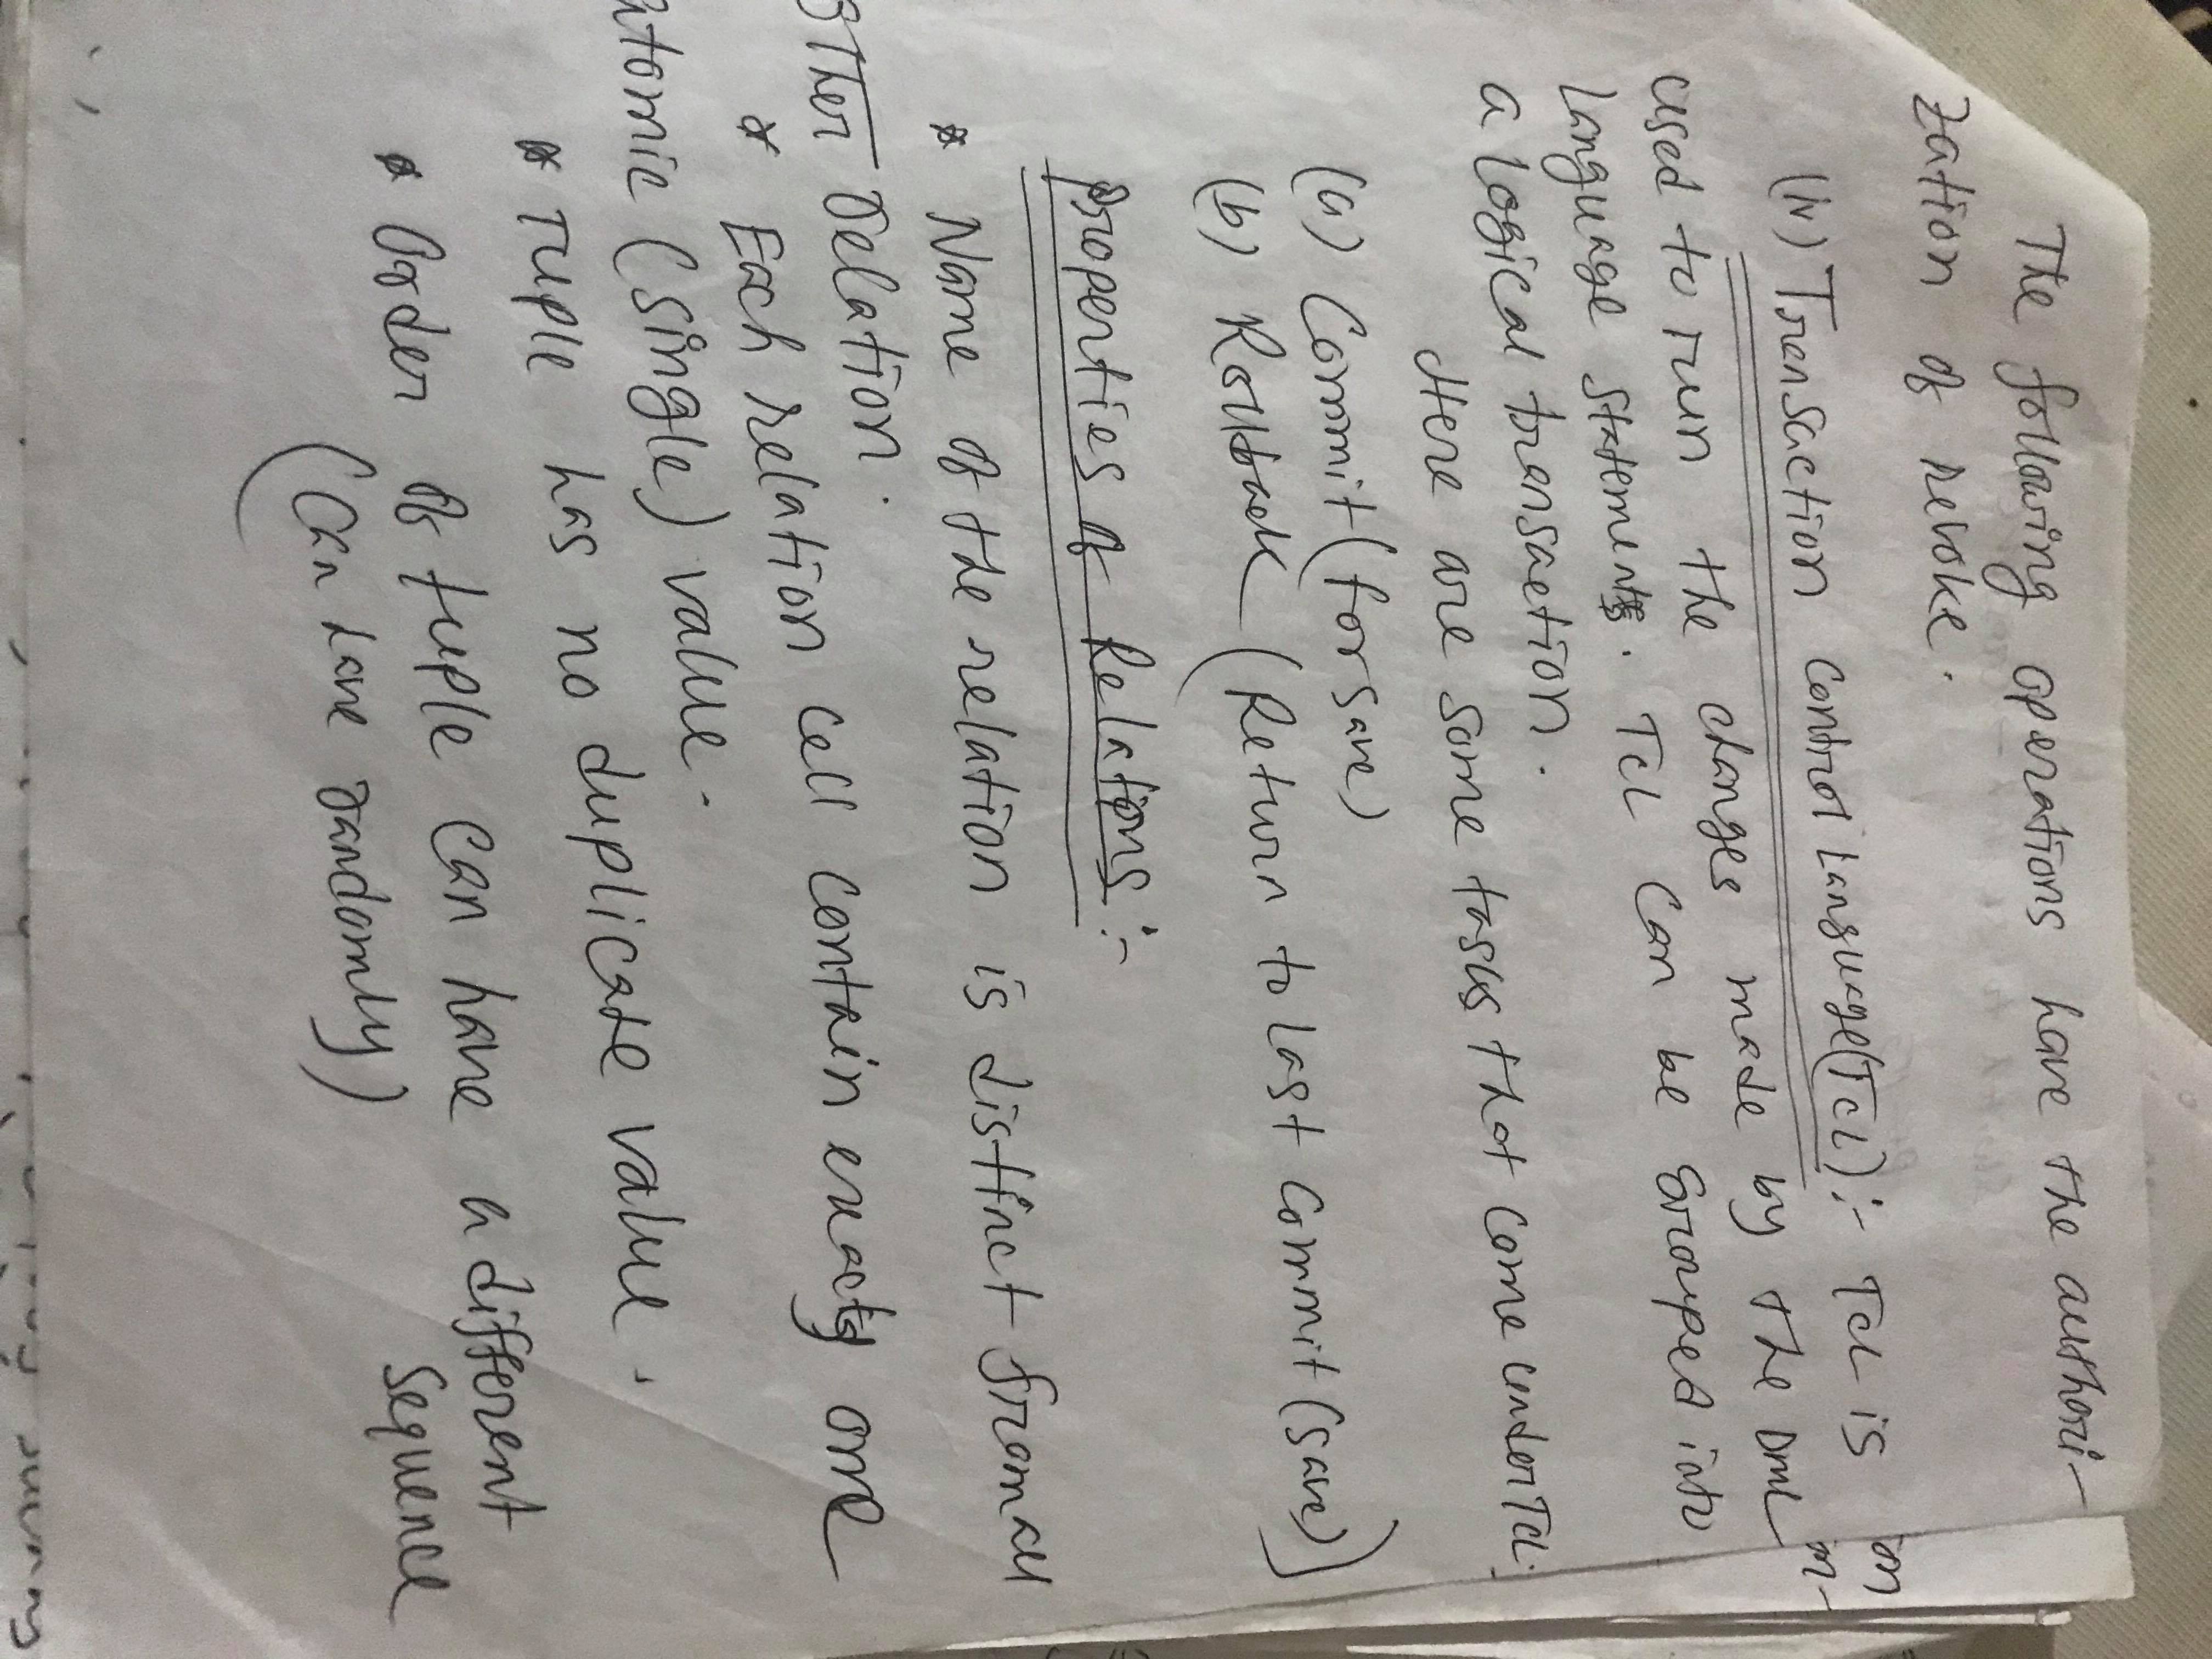 The following operations have the authori-
zation of revoke.
(iv) Transaction Control Language(TCL):- TCL is
used to run the changes made by the DML
Language Statements. TCL Can be Grouped into
a logical transaction.
Here are some tasks that come under TCL.
(a) Commit (for save)
(b) Rollback (Return to Last Commit (save))
Properties of Relations:-
* Name of the relation is distinct from all
other relation.
* Each relation cell contain exactly one
atomic (single) value.
* Tuple has no duplicate value.
* Order of tuple can have a different
Sequence
(Can have randomly)